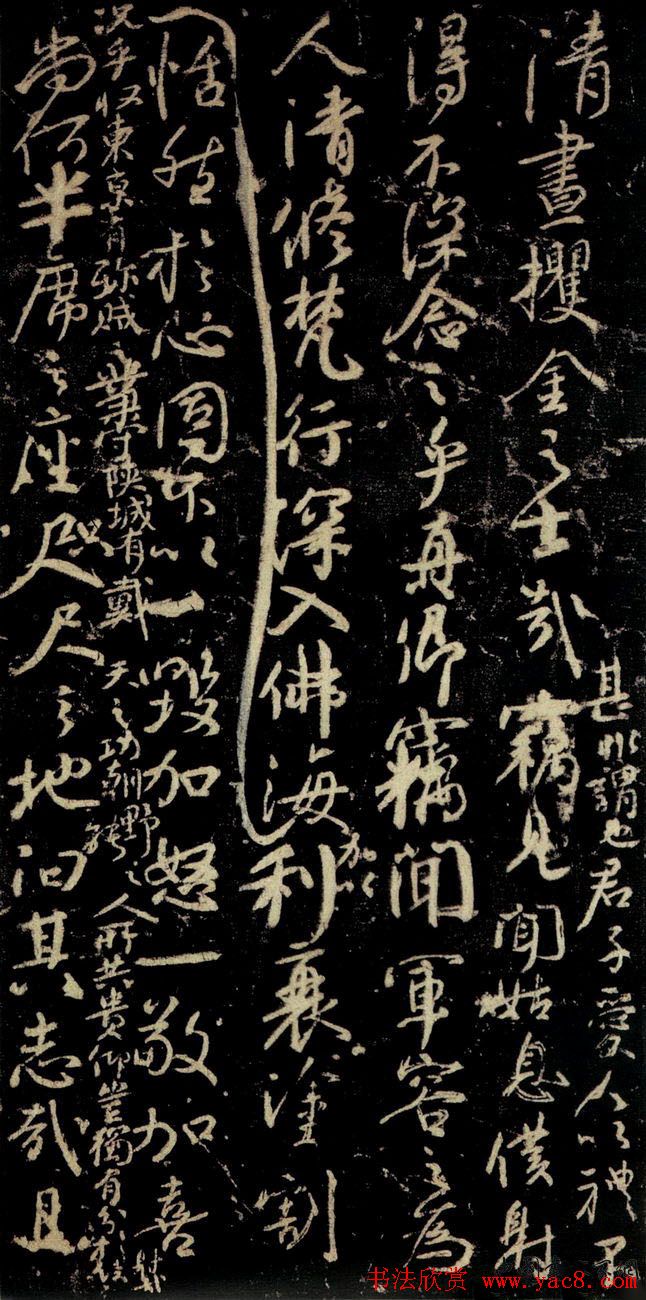 甚非謂也君子愛人以禮不
清晝攫金之士哉竊見聞姑息僕射
得不深念之乎真卿竊聞軍容之為
人清修梵行深入佛海加以利衰塗割
恬然於心固不以一毀加怒一敬加喜
況乎收東京有殄賊之業守陝城有戴天之功朝野之人所共貴仰豈獨有分於僕射哉
尚何半席之座咫尺之地汩其志哉且
书法欣赏 www.yac8.com